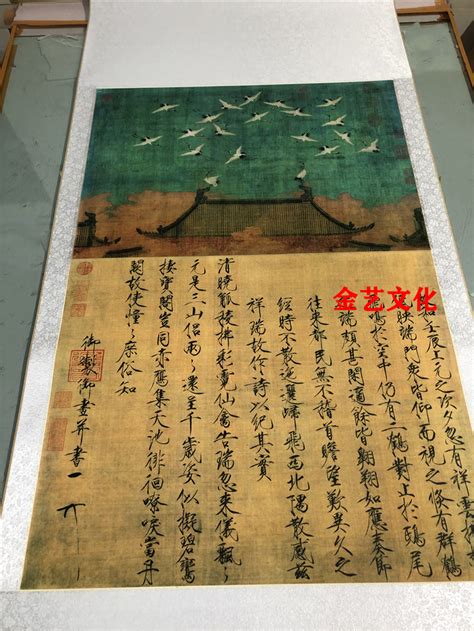 金艺文化
壬辰上元之次夕忽有祥雲
映端門眾皆仰而視之倏有群鶴
鳴於空中仍有二鶴對止於鴟尾
端頗甚閑適餘皆翱翔如應奏節
往來都民無不稽首瞻望歎異久之
經時不散迤邐歸飛西北隅散感茲
祥瑞故作詩以紀其實
清曉觚稜拂彩霓仙禽告瑞忽來儀飄々
元是三山侶兩々還呈千歲姿似擬碧鸞
棲寶閣豈同赤鴈集天池徘徊嘹唳當丹
闕故使憧々庶俗知
御製御畫并書